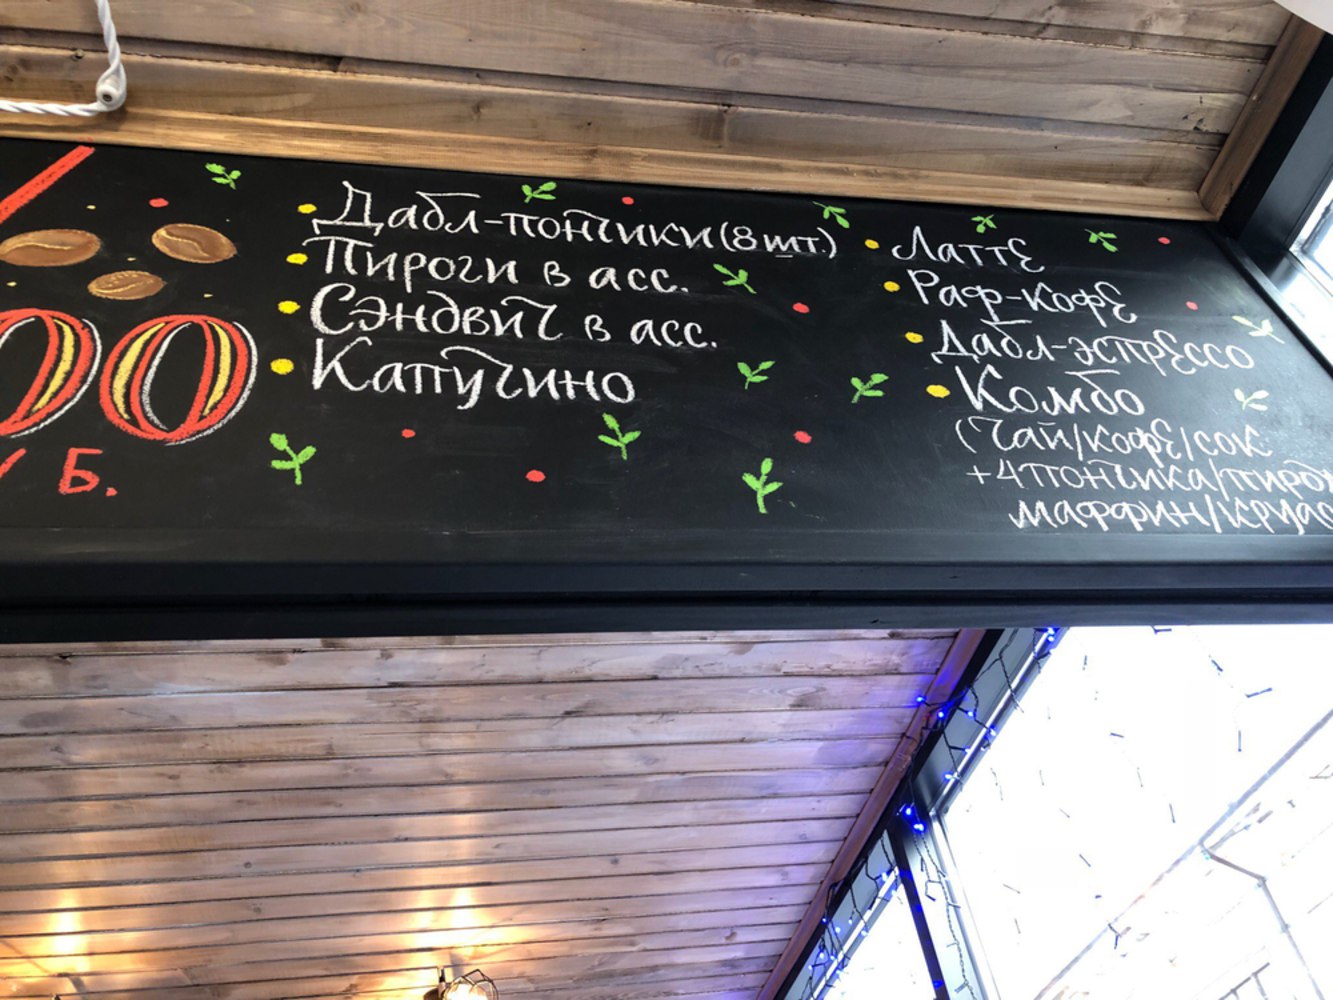 00
Б.
Дабл-пончики (8 шт.)
Пироги в асс.
Сэндвич в асс.
Капучино
Латте
Раф-кофе
Дабл-эспрессо
Комбо
(Чай/кофе/сок
+4 пончика/
маффин/